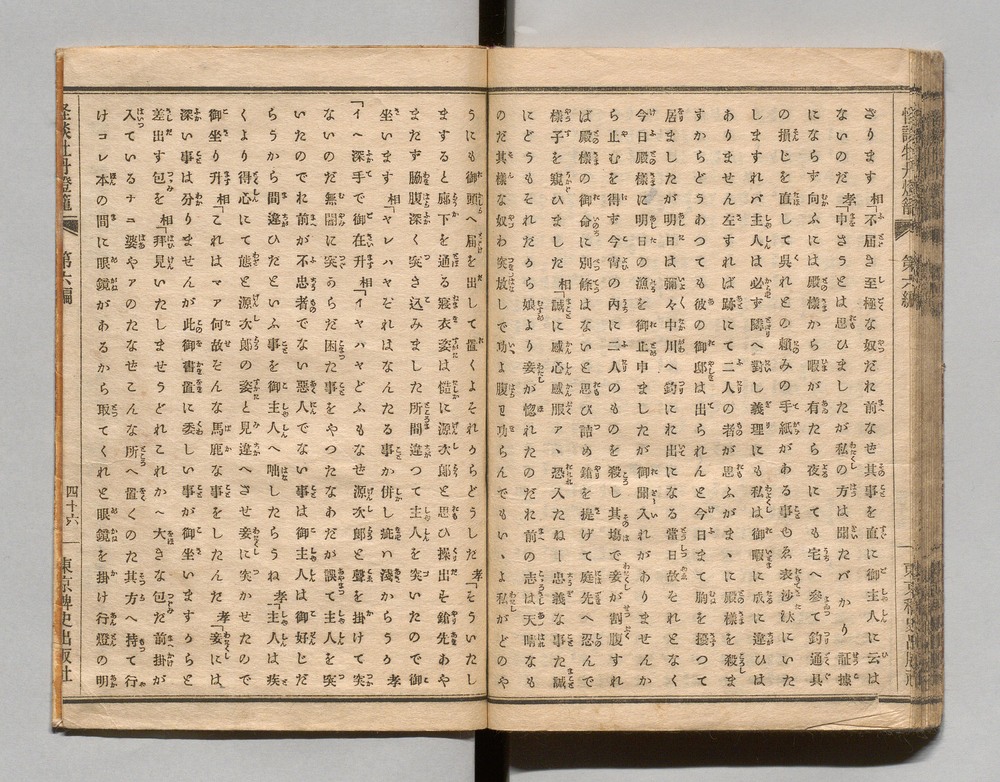 さります 相「不届き至極な奴だれ前なせ其事を直に御主人に云は
ないのだ 孝「申さうとは思ひましたが私の方は聞たバかり証據
にならず向ふには殿様から暇が有たら夜にても宅へ参て釣道具
の損じを直して呉れとの頼みの手紙がある事ゆゑ表沙汰にいた
しますれバ主人は必ず隣へ對し義理にも私は御暇に成に違ひは
ありません左すれば跡にて二人の者が思ふがまゝに殿様を殺ま
すからどうあつても彼の御邸は出られんと今日まで胸を擦つて
居ましたが明日は彌々中川へ釣にお出になる當日故それとなく
今日殿様に明日の漁を御止申ましたが御聞入れがありませんか
ら止むを得ず今宵の內に二人のものを殺し其場で妾が割腹すれ
ば殿様の御命に別條はないと思ひ詰め鎗を提げて庭先へ忍んで
様子を窺ひました 相「誠に感心感服ァ、恐入たねー忠義な事だ誠
にどうもそれだから娘より妾が惚れたのだれ前の志は天晴なも
のだ其様な奴わ突放しで功いゝよ腹ヨ切らんでもいゝよ私がどのや
うにも御頭へ届を出して置くよそれからどうした 孝「そういたし
ますると廊下を通る寢衣姿は慥に源次郎と思ひ操出す鎗先あや
またず脇腹深く突き込みました所間違つて主人を突いたので御
坐います 相「ヤレハヤそれはなんたる事か併し疵は淺からうゝ 孝
「イヘ深手で御在升 相「イヤハヤどふもなせ源次郎と聲を掛けて突か
ないのだ無闇に突うらだ困た事をやつたなあだが誤て主人を突
いたのでれ前が不忠者でない惡人でない事は御主人は御好じだ
らうから間違ひたといふ事を御主人へ咄したらうね 孝「主人は疾
くより得心にて態と源次郎の姿と見違へさせ妾に突せたので
御坐り升 相「これはマァ何故そんな馬鹿な事をしたんだ 孝「妾には
深い事は分りませんが此御書置に委しい事が御坐いますうらと
差出す包を 相「拜見いたしませうどれこれかへ大きな包だ前掛が
入ているナニ婆やァのたなせこんな所へ置くのた其方へ持て行
けコレ本の間に眼鏡があるから取てくれと眼鏡を掛け行燈の明
怪談牡丹燈籠
第六編
四十六
東京稗史出版社